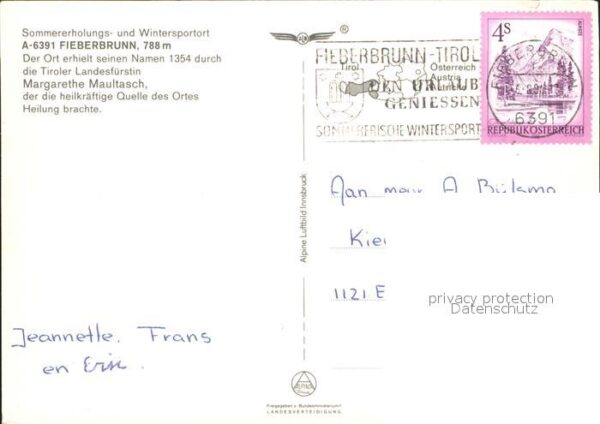 Sommererholungs- und Wintersportort
A-6391 FIEBERBRUNN, 788 m
Der Ort erhielt seinen Namen 1354 durch
die Tiroler Landesfürstin
Margarethe Maultasch,
der die heilkräftige Quelle des Ortes
Heilung brachte.
®
FIEBERBRUNN-TIROL
Tirol
Österreich
Austria
DEN URLAUB
GENIESSEN
SOMMERFRISCHE WINTERSPORT
4S
FIEBERBRUNN
6391
REPUBLIK ÖSTERREICH
Alpine Luftbild Innsbruck
Aan
A
Kie
1121 E
privacy protection
Datenschutz
Jeannette. Frans
en Eric.
Freigegeben v. Bundesministerium f.
LANDESVERTEIDIGUNG.